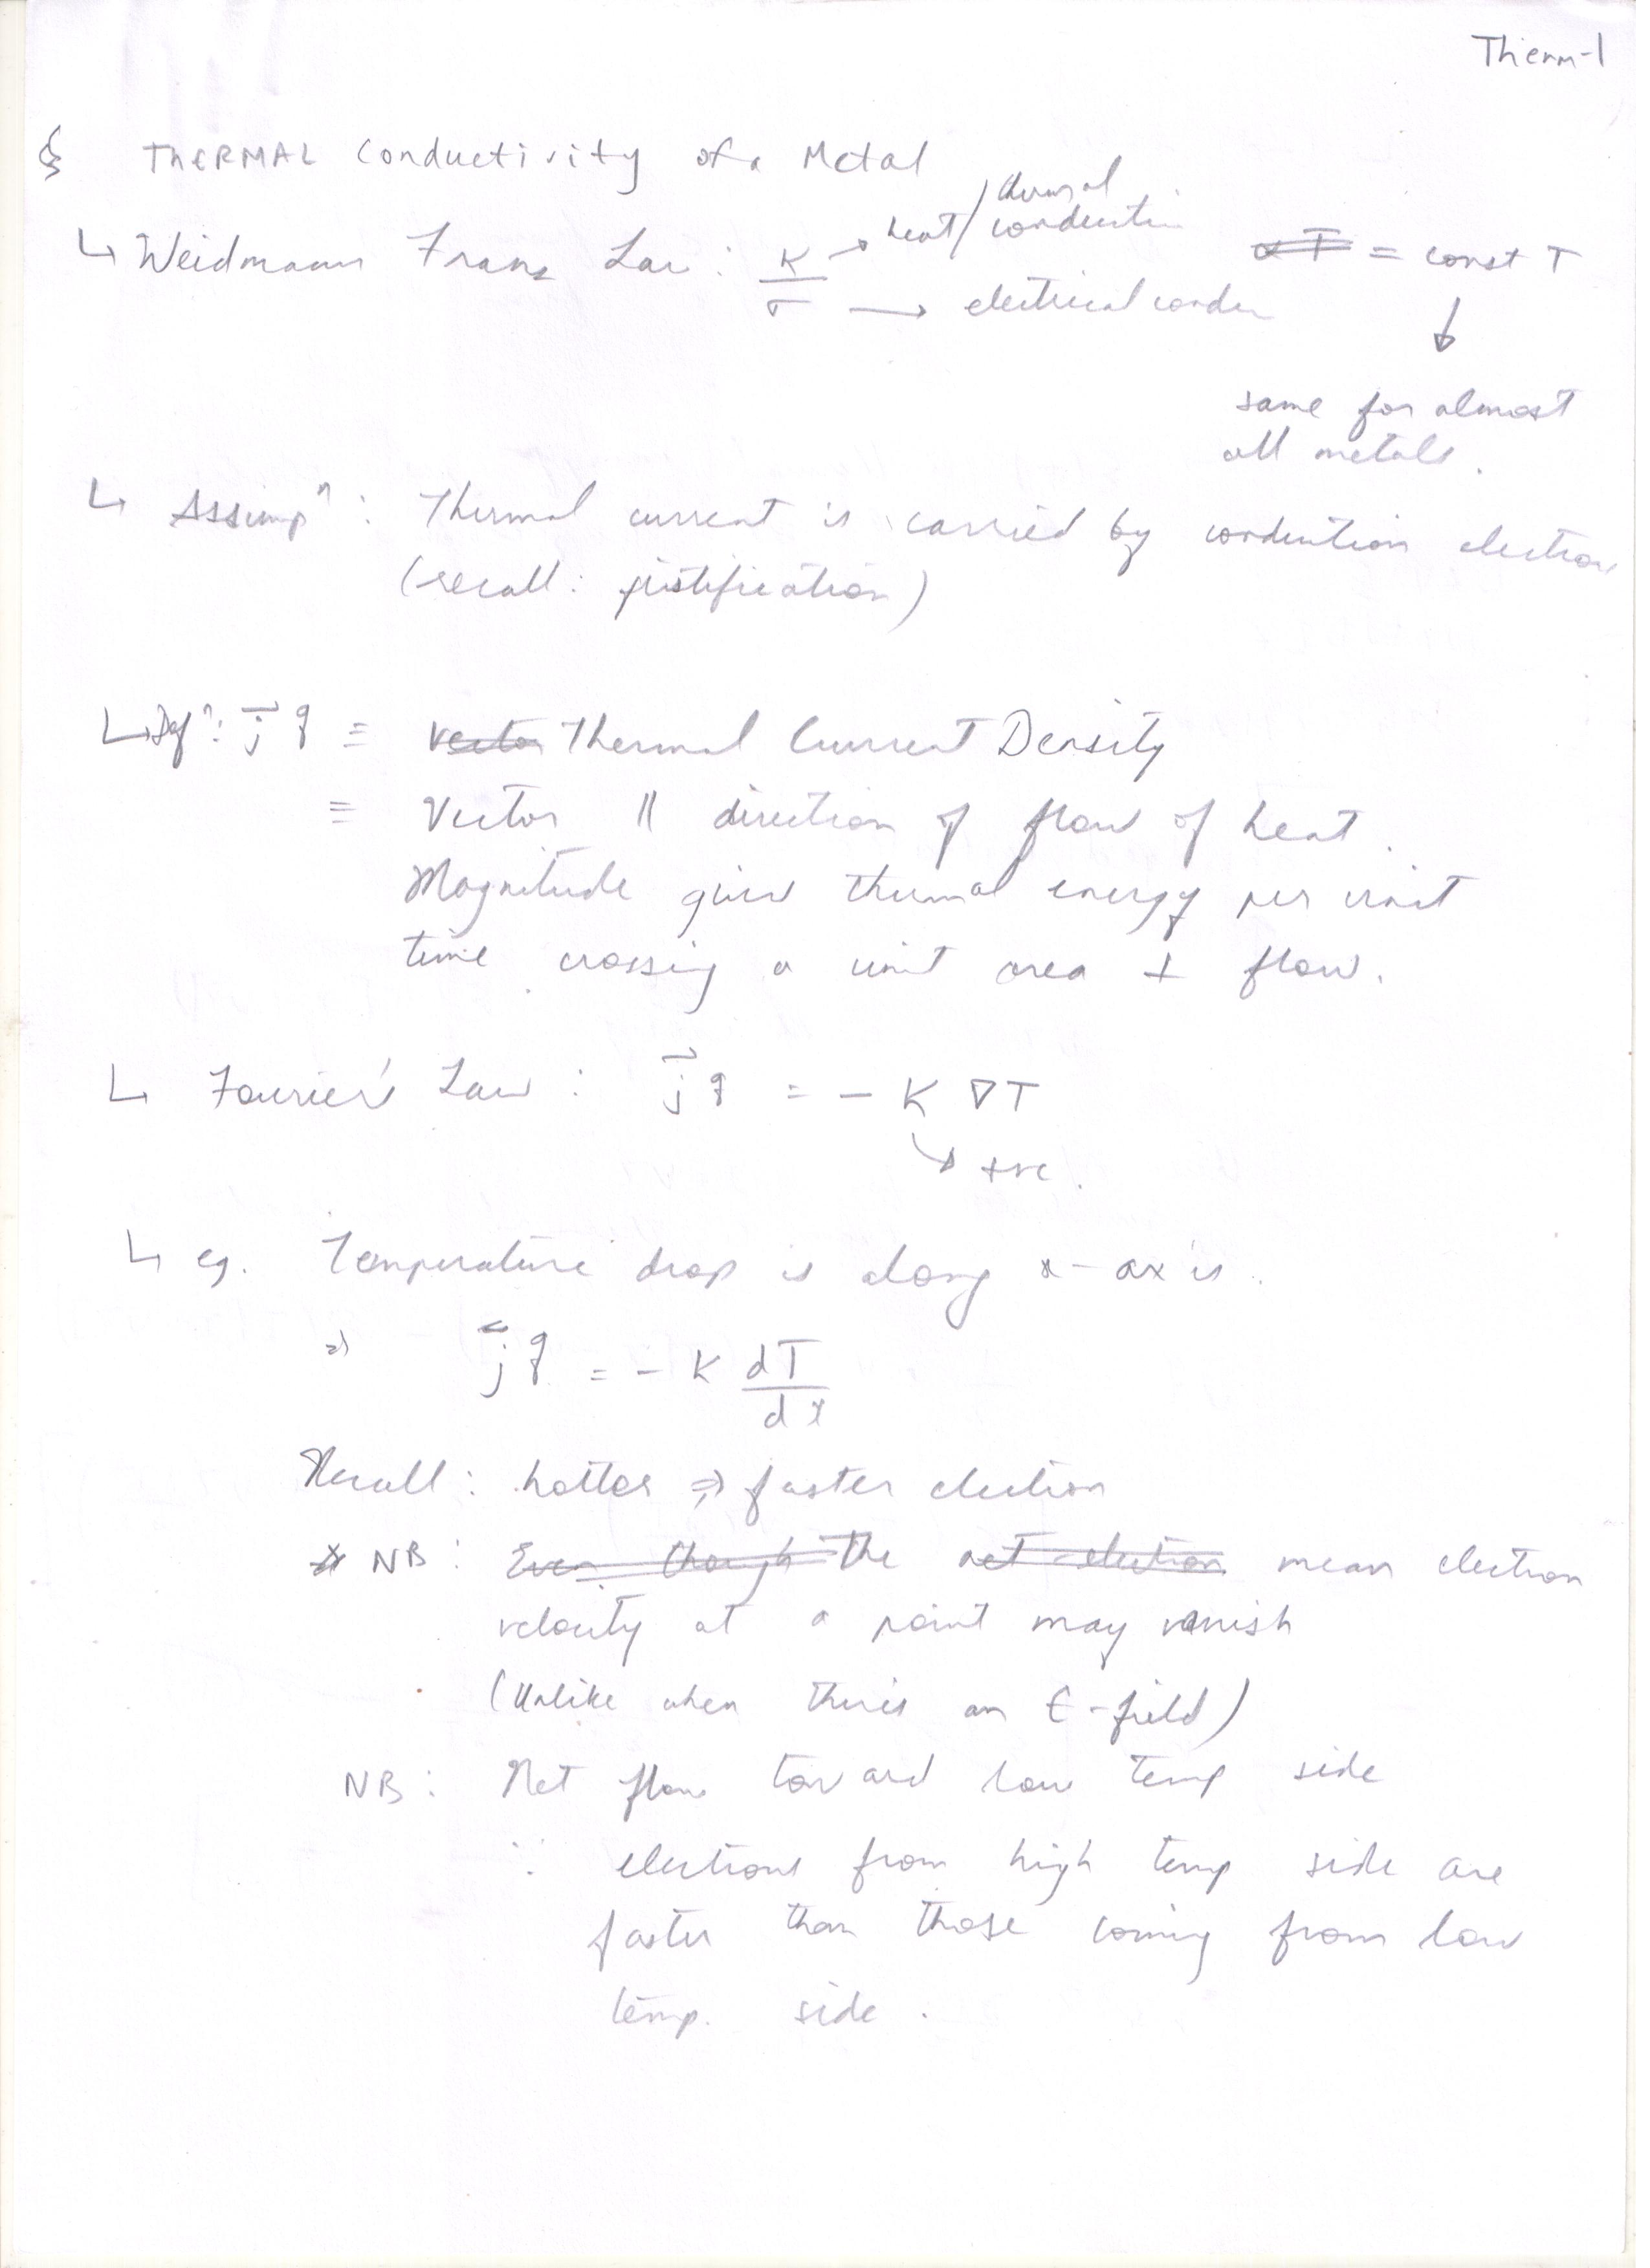 Therm-1
§ THERMAL Conductivity of a Metal
↳ Weidmann Franz Law : K/σ = const T
K → heat/thermal conduction
σ → electrical condu
∝ T
↓
same for almost
all metals.
↳ Assumpⁿ : Thermal current is carried by conduction electrons
(recall : justification)
↳ Defⁿ : j⃗ q ≡ Vector Thermal Current Density
≡ Vector || direction of flow of heat.
Magnitude gives thermal energy per unit
time crossing a unit area ⊥ flow.
↳ Fourier's Law : j⃗ q = - K ∇T
↘ +ve.
↳ eg. Temperature drop is along x-axis.
⇒ j⃗ q = - K dT/dx
Recall : hotter ⇒ faster electron
* NB : Even though the net electron mean electron
velocity at a point may vanish
(Unlike when there's an E-field)
NB : Net flow toward low temp side
∵ electrons from high temp side are
faster than those coming from low
temp. side.